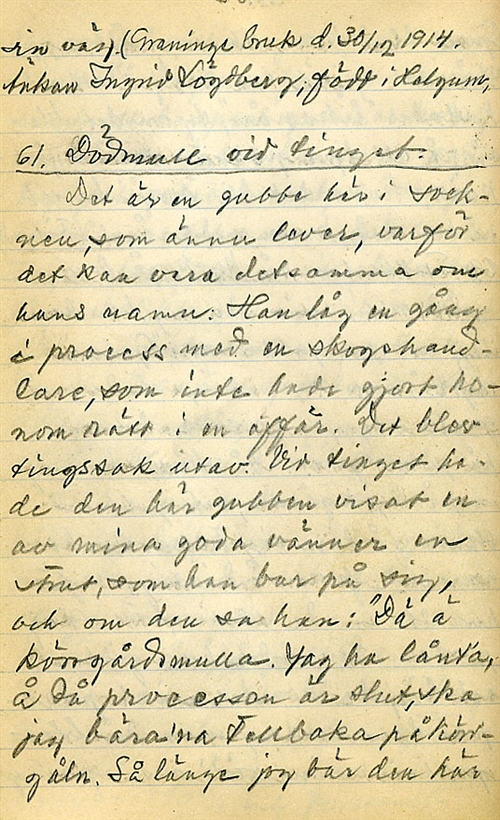 sin väg. (Graninge bruk d. 30/12 1914.
Änkan Ingrid Lögdberg, född i Helgum,
61. Dödmull vid tinget.
Det är en gubbe här i sock-
nen, som ännu lever, varför
det kan vara detsamma om
hans namn. Han låg en gång
i process med en skogshand-
lare, som inte hade gjort ho-
nom rätt i en affär. Det blev
tingssak utav. Vid tinget ha-
de den här gubben visat en
av mina goda vänner en
strut, som han bar på sig,
och om den sa han: "Dä ä
körrgårdsmulla. Jag ha lånt'a,
å då processen är slut, ska
jag bära'na tellbaka på körr-
gåln. Så länge jag bär den här